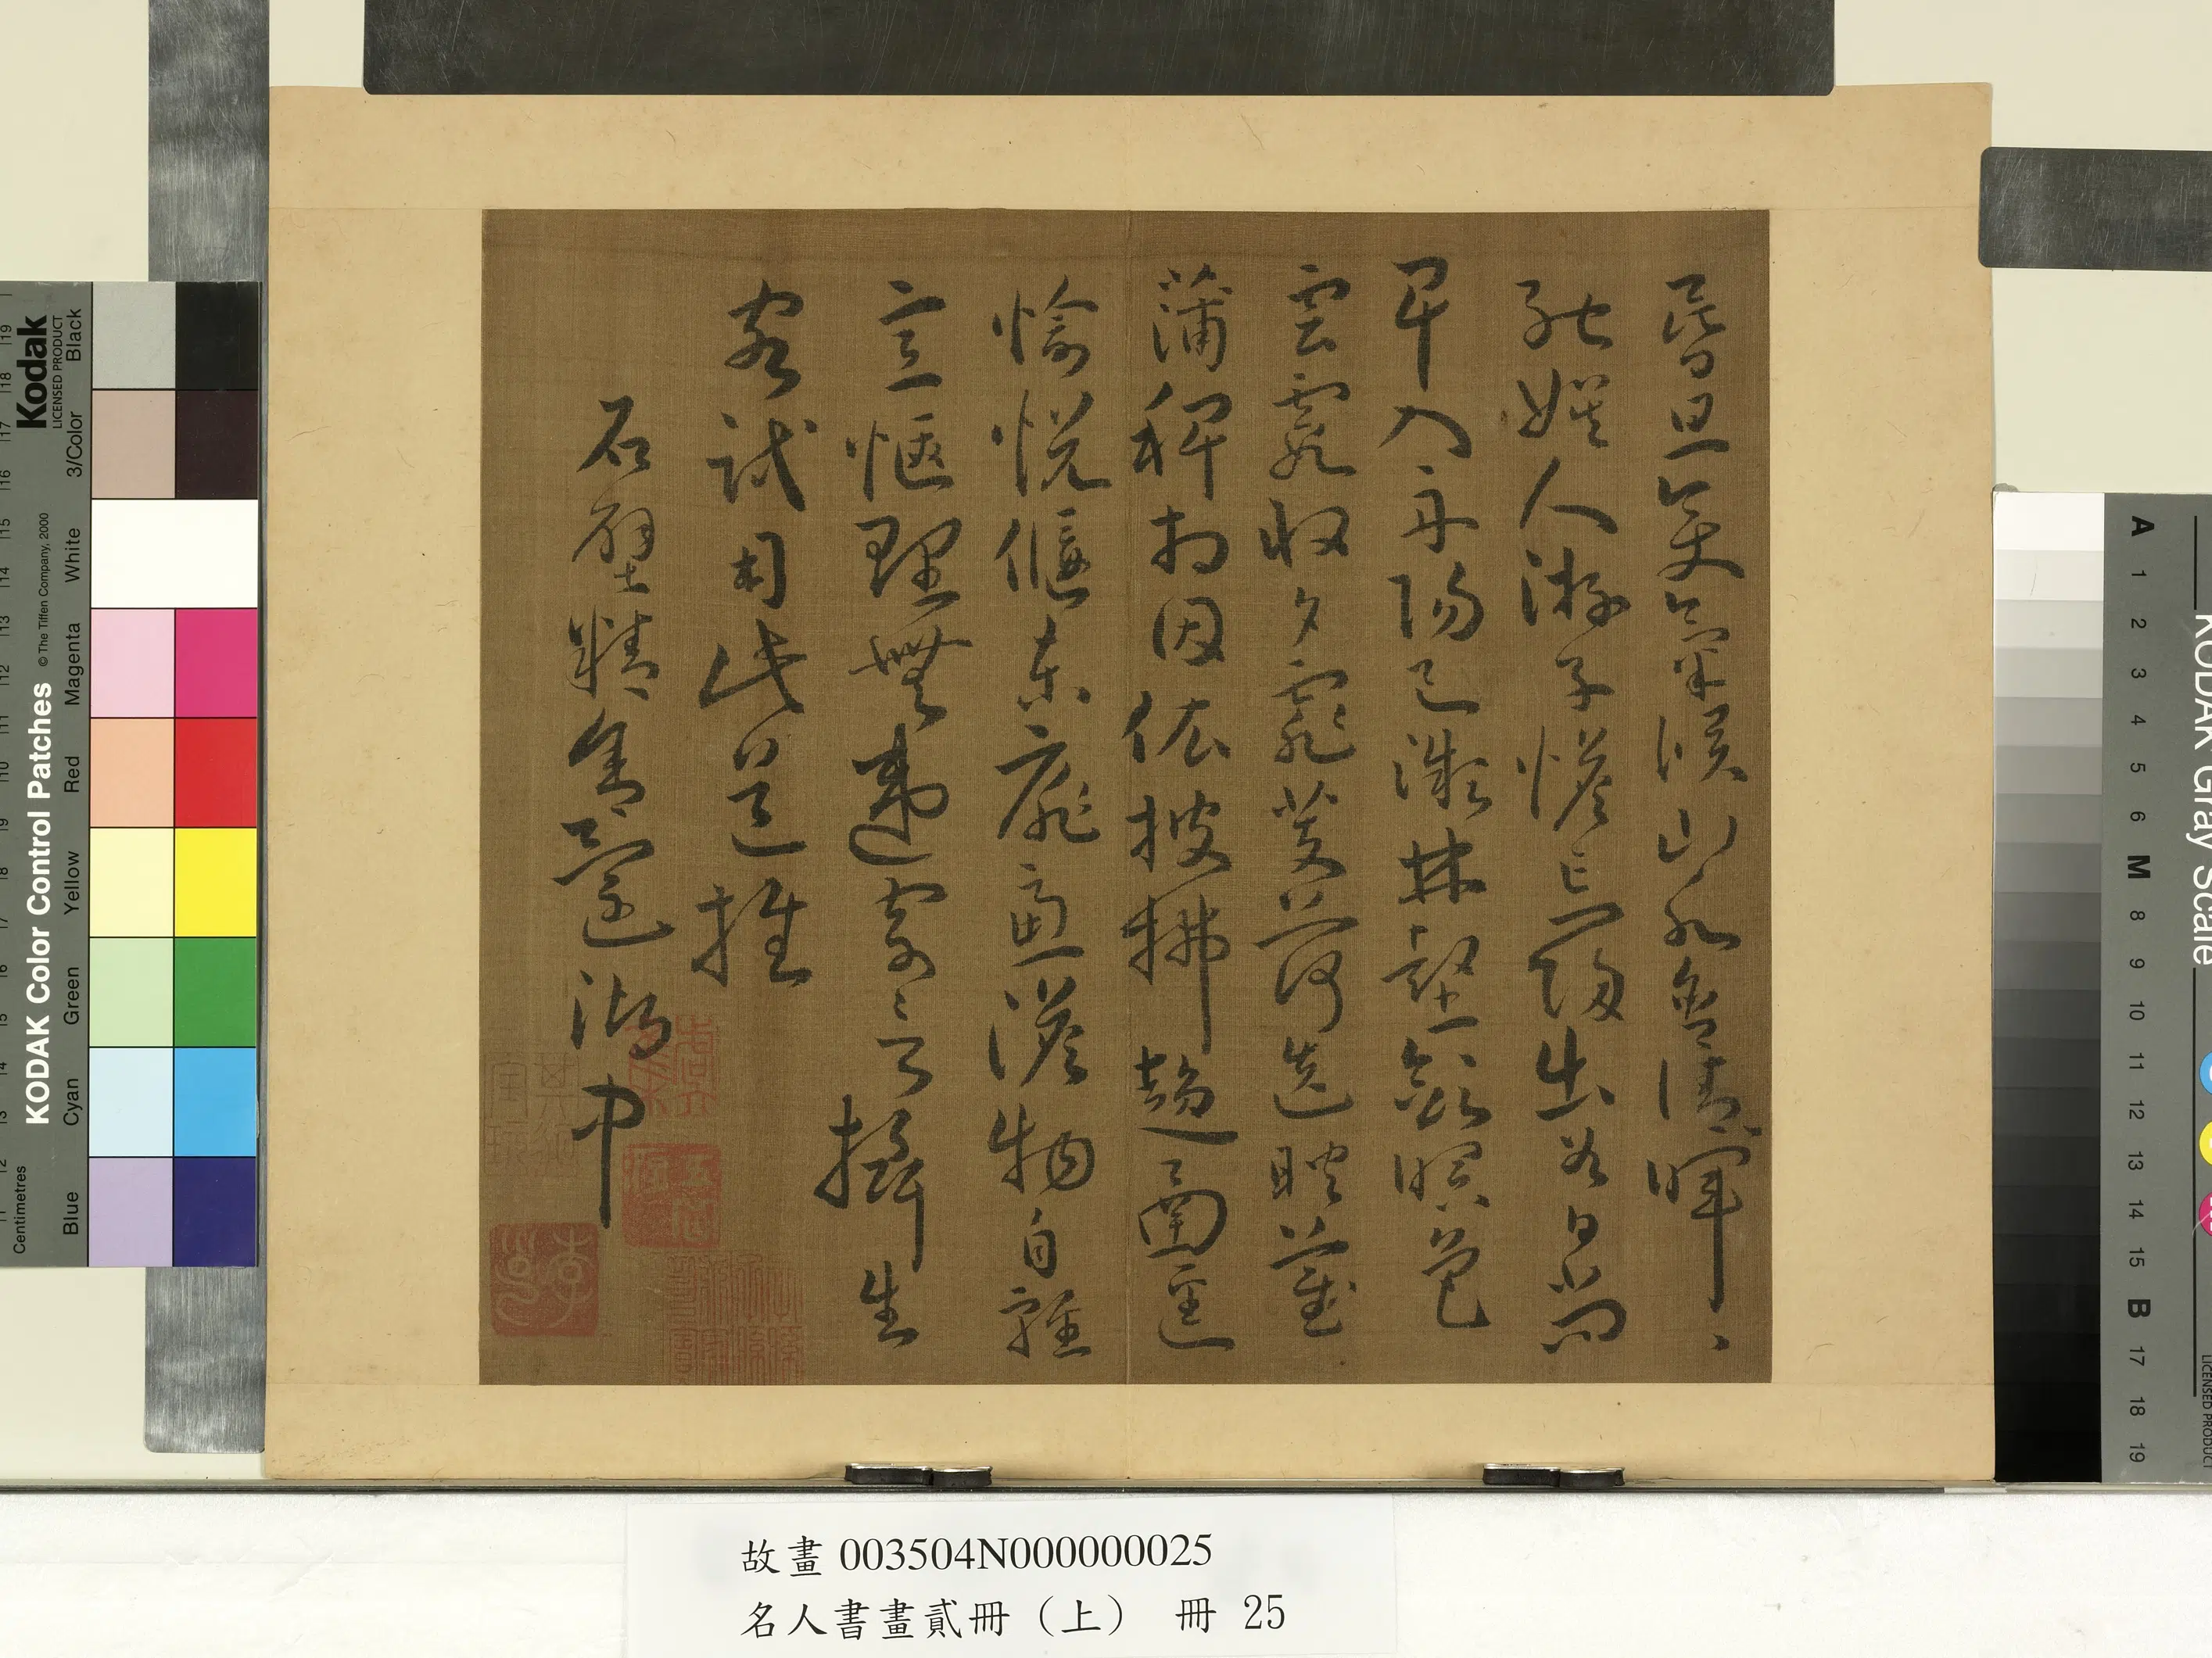 昏旦變氣候山水含清暉〻
能娛人游子憺忘歸出谷日尚
早入舟陽已微林壑斂暝色
雲霞收夕霏芰荷迭映蔚
蒲稗相因依披拂趨南逕
愉悅偃東扉慮澹物自輕
意愜理無違寄言攝生
客試用此道推
石壁精舍還湖中
故畫 003504N000000025
名人書畫貳冊（上） 冊 25
Kodak
LICENSED PRODUCT
KODAK Color Control Patches
© The Tiffen Company, 2000
Centimetres
Blue Cyan Green Yellow Red Magenta White 3/Color Black
KODAK Gray Scale
A 1 2 3 4 5 6 M 8 9 10 11 12 13 14 15 B 17 18 19
LICENSED PRODUCT